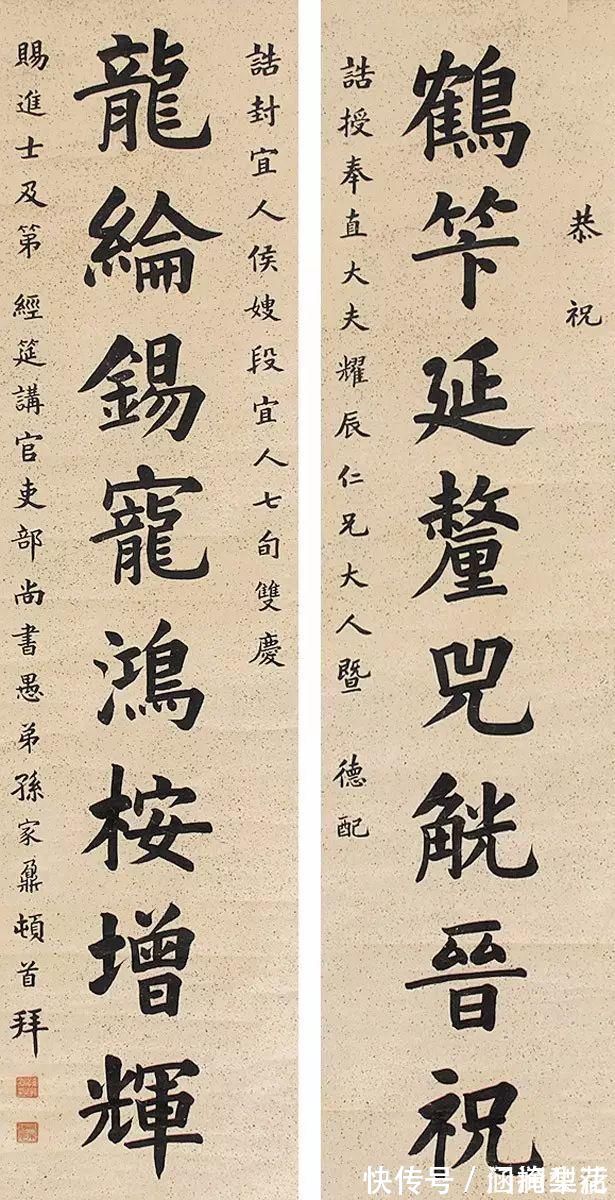 恭祝
鶴笇延釐兕觥晉祝
誥授奉直大夫耀辰仁兄大人暨 德配
誥封宜人侯嫂段宜人七旬雙慶
龍綸錫寵鴻桉增輝
賜進士及第 經筵講官吏部尚書愚弟孫家鼐頓首拜
快传号